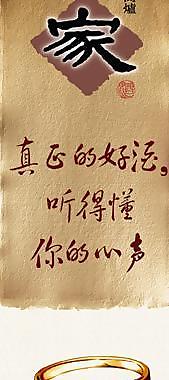 家
真正的好酒，
听得懂
你的心声